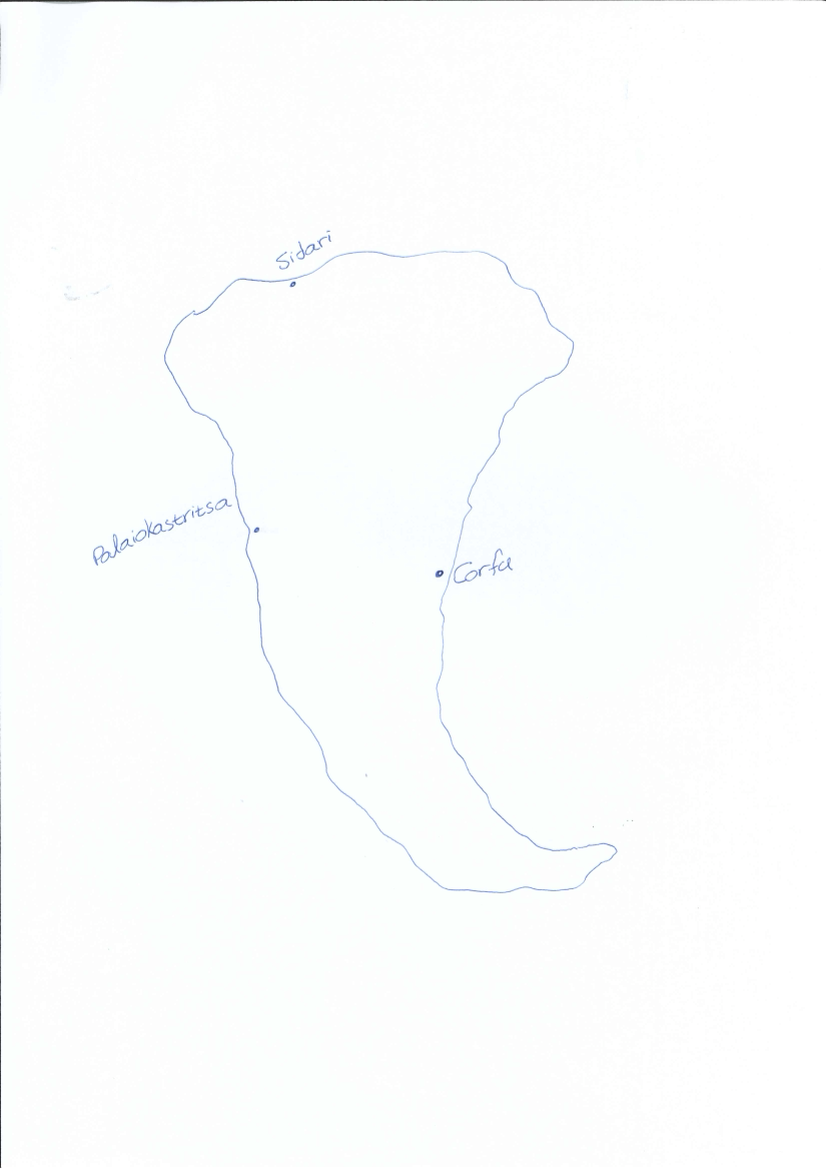 Sidari
Palaiokastritsa
Corfu